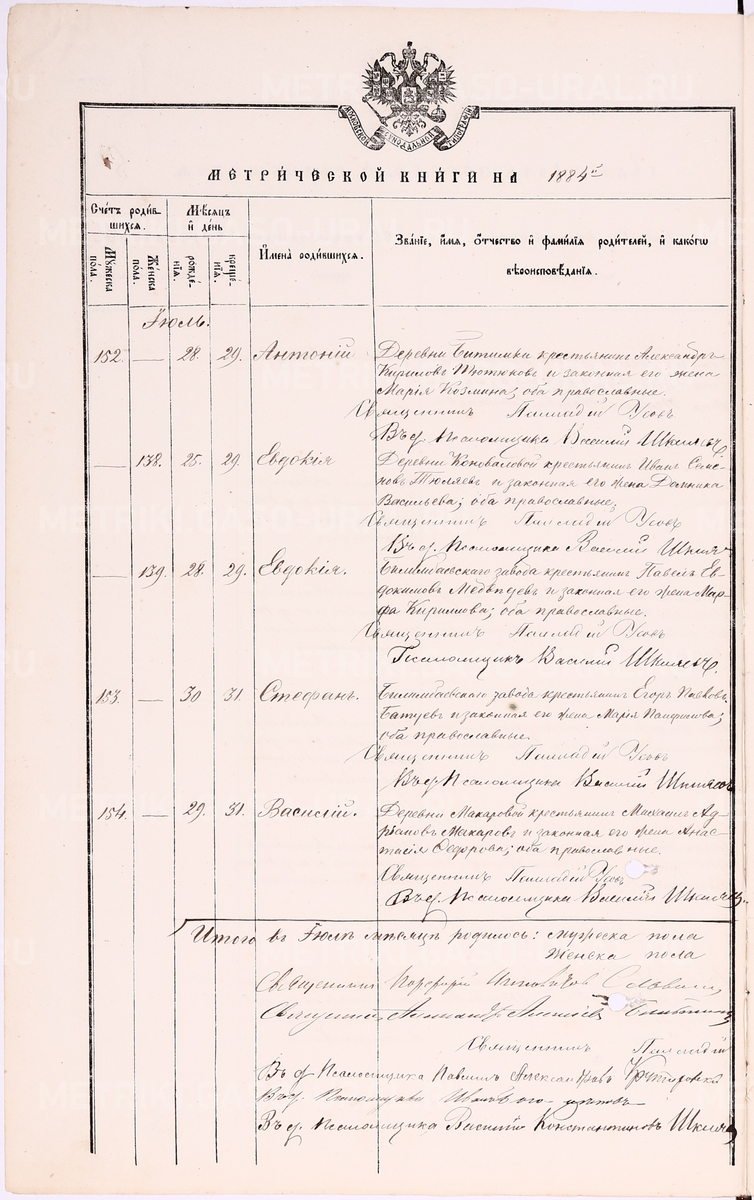 МОСКОВСКОЙ СѴНОДАЛЬНОЙ ТИПОГРАФІИ
МЕТРИ́ЧЕСКОЙ КНИ́ГИ НА 1884й
Счетъ роди́в-
шихся.
Мѣсяцъ
и день
Мужеска
пола.
Женска
пола.
рожде-
нія.
креще-
нія.
Имена̀ роди́вшихся.
Зва́ніе, и́мя, о́тчество и фами́лія роди́телей, и како́гѡ
вѣроисповѣ́данія.
Іюль.
152. — 28. 29. Антоній Деревни Битимки крестьянинъ Александръ
Кириловъ Тютюковъ и законная его жена
Марія Козмина; оба православные.
Священникъ Палладій Усовъ
Въ д. Псаломщика Василій Шкляевъ
— 138. 25. 29. Евдокія Деревни Коноваловой крестьянинъ Иванъ Семе-
новъ Тюляевъ и законная его жена Домника
Васильева; оба православные.
Священникъ Палладій Усовъ
Въ д. Псаломщика Василій Шкляевъ
— 139. 28. 29. Евдокія. Билимбаевскаго завода крестьянинъ Павелъ Ев-
докимовъ Медвѣдевъ и законная его жена Мар-
фа Кирилова; оба православные.
Священникъ Палладій Усовъ
Псаломщикъ Василій Шкляевъ.
153. — 30 31. Стефанъ. Билимбаевскаго завода крестьянинъ Егоръ
Батуевъ и законная его жена Марія
оба православные.
Священникъ Палладій Усовъ
Въ д. Псаломщика Василій Шкляевъ
154. — 29. 31. Василій. Деревни Макаровой крестьянинъ Михаилъ Ад-
ріановъ Макаровъ и законная его жена Анас-
тасія Ѳедорова; оба православные.
Священникъ Палладій Усовъ
Въ д. Псаломщика Василій Шкляевъ.
Итого въ Іюлѣ мѣсяцѣ родилось: мужеска пола
женска пола
Священникъ Порфирій Словцовъ
Священникъ Александръ
Священникъ Палладій
Въ д. Псаломщика Павелъ Александровъ
Въ д. Псаломщика
Въ д. Псаломщика Василій Константиновъ Шкляевъ